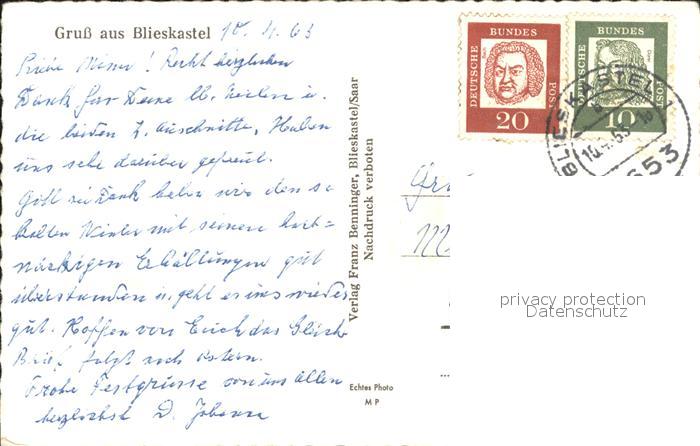 Gruß aus Blieskastel 10.4.63
Liebe Mimi! Recht herzlichen
Dank für Deine lb. Zeilen u.
die beiden Z. Auschnitte, Haben
uns sehr darüber gefreut.
Gott sei Dank haben wir den so
kalten Winter mit seinen hart=
näckigen Erkältungen gut
überstanden u. geht es uns wieder
gut. Hoffen von Euch das Gleiche
Brief folgt nach Ostern.
Frohe Festgrüsse von uns allen
herzlichst D. Johanna
Verlag Franz Benninger, Blieskastel/Saar
Nachdruck verboten
Echtes Photo
M P
DEUTSCHE BUNDES POST
Bach
20
DEUTSCHE BUNDES POST
Dürer
10
BLIESKASTEL
10.4.63
653
privacy protection
Datenschutz